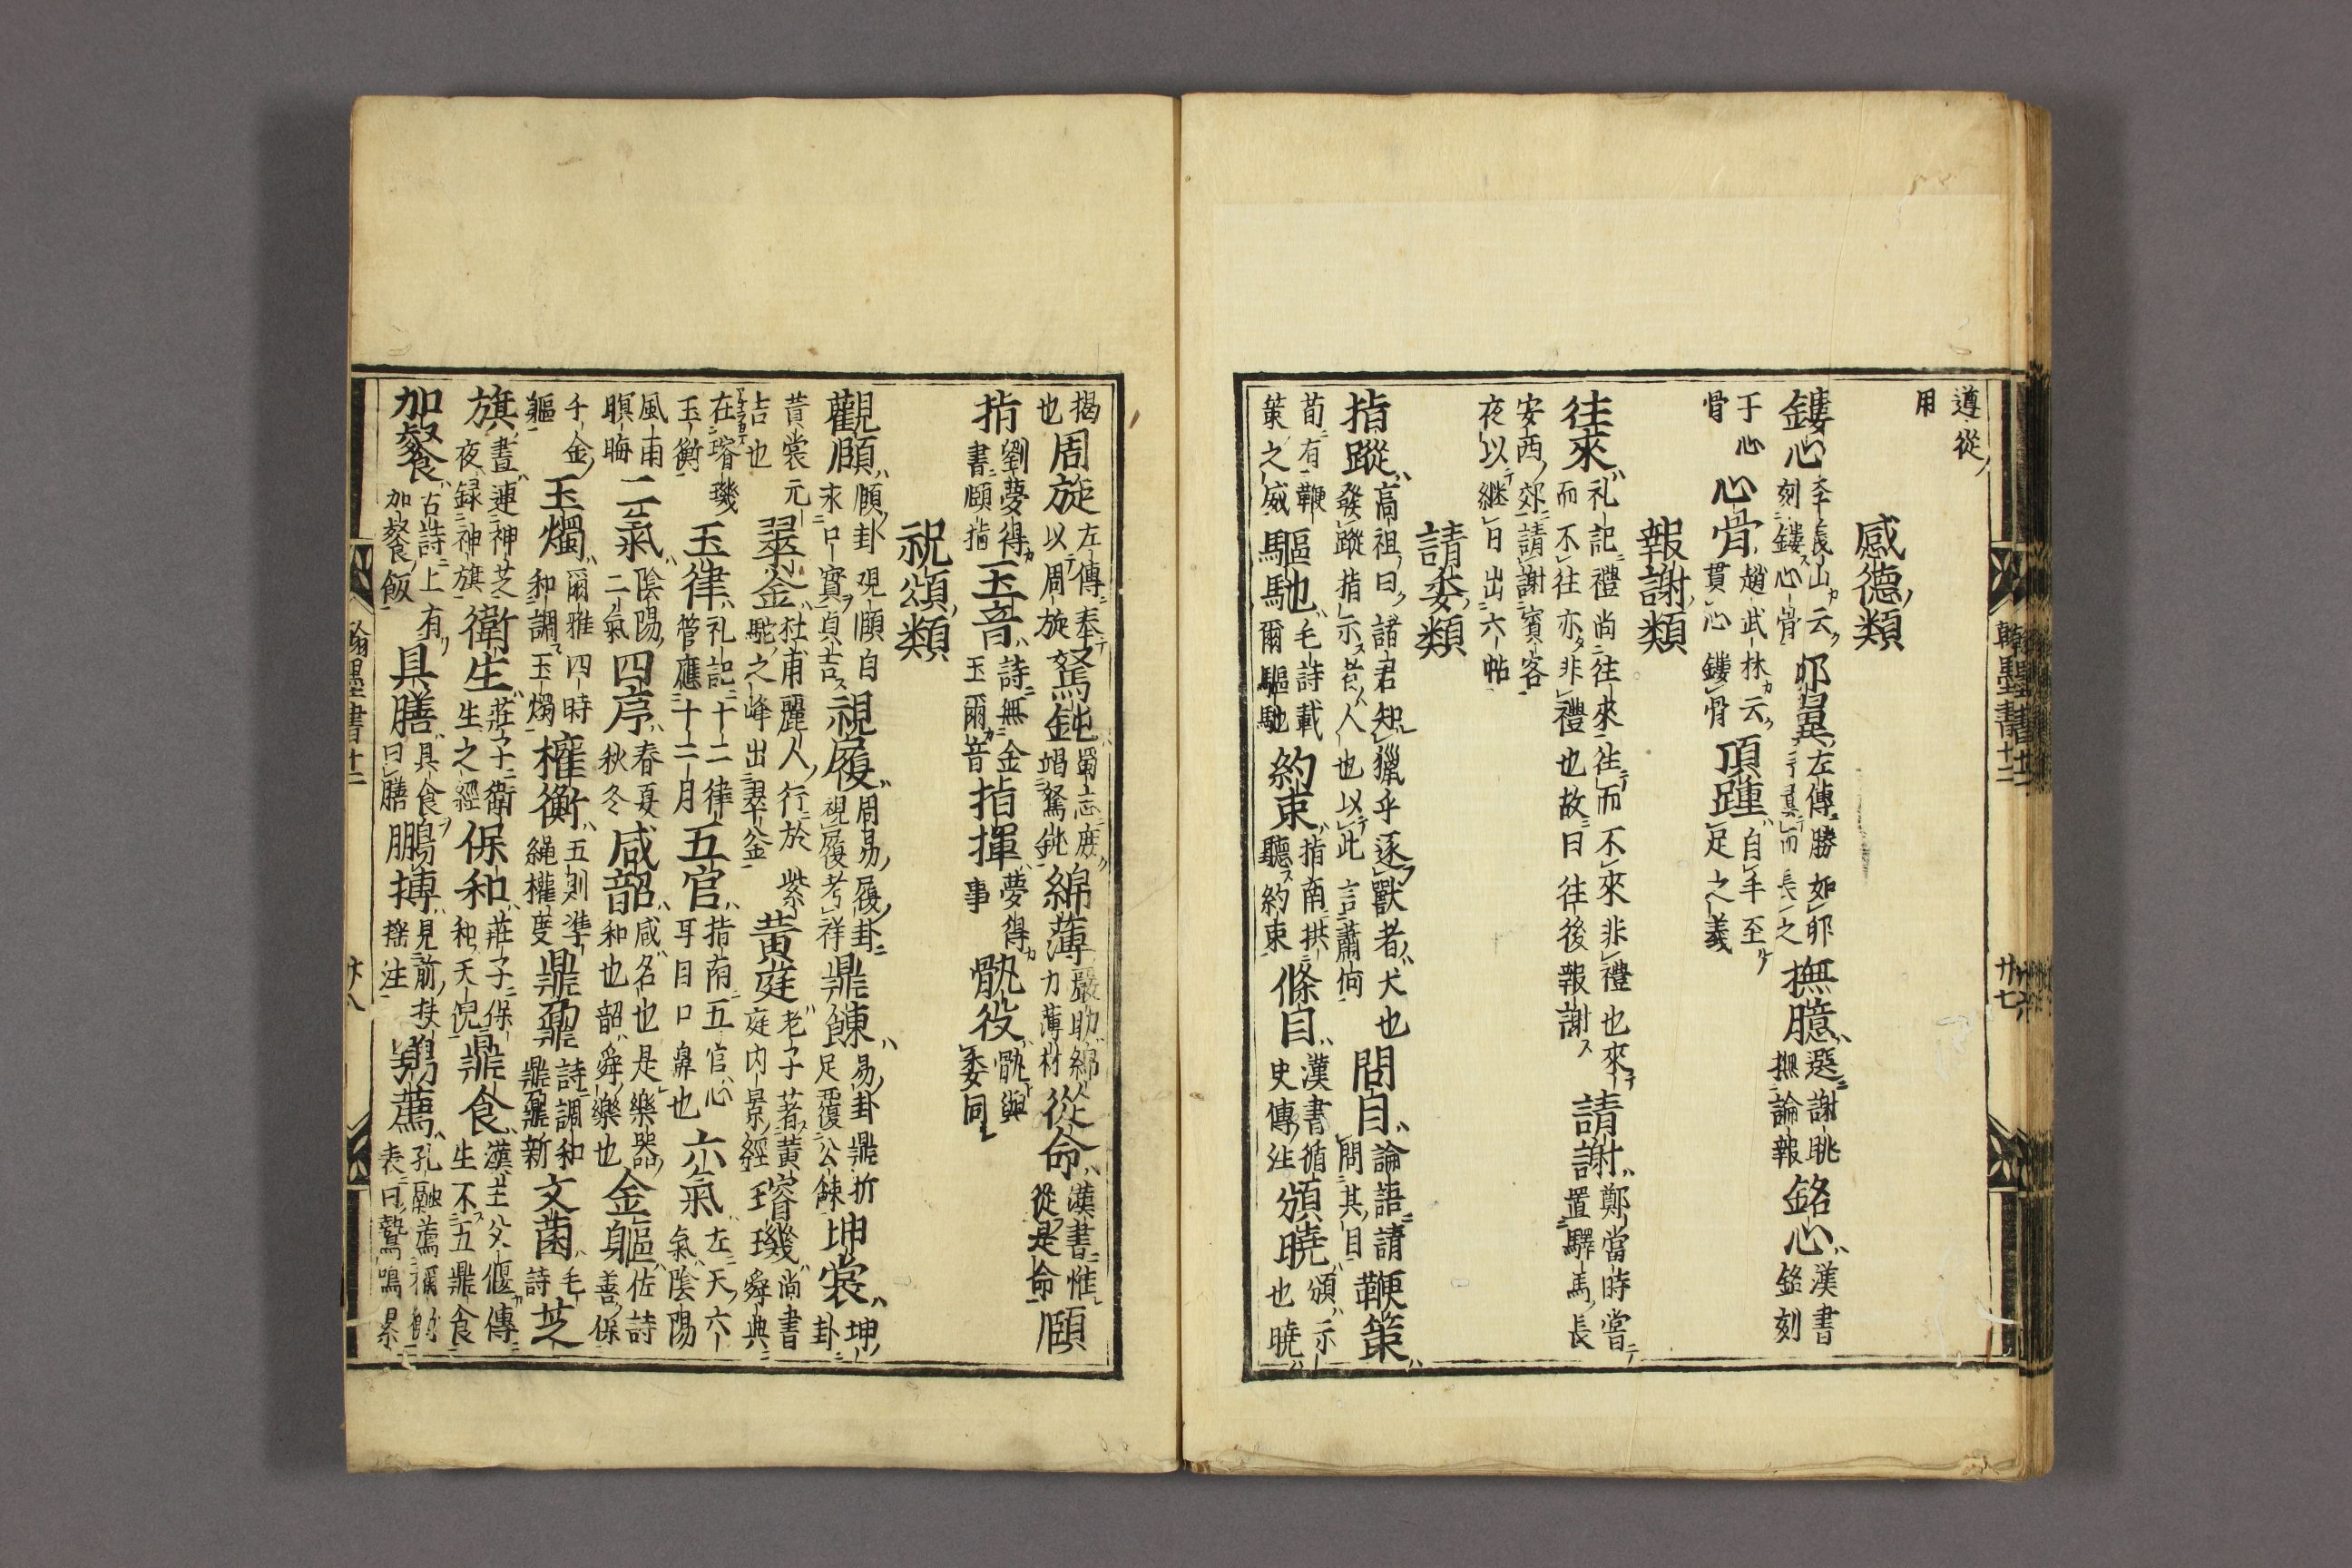 遵從
用
感德類
鏤心李義山云刻鏤心骨卵翼左傳勝如卵予翼而長之撫臆選謝眺撫論報銘心漢書銘刻
于心
骨心骨趙武林云貫心鏤骨頂踵自手至足之義
報謝類
往來礼記禮尚往來往而不來非禮也來而不往亦非禮也故曰往後報謝請謝鄭當時嘗置驛馬長
安西郊請謝賓客
夜以継日出六帖
請委類
指蹤高祖曰諸君知獵乎逐獸者犬也發蹤指示者人也以此言蕭何問目論語請問其目鞭策
荀有鞭
策之威驅馳毛詩載爾驅馳約束指南拱聽約束條目漢書循史傳注頒曉頒示也曉
揭
也周旋左傳奉以周旋駑鈍蜀志庶竭駑鈍綿薄嚴助綿力薄材從命漢書惟從是命頤
指劉夢得書頤指玉音詩無金玉爾音指揮夢得事骩役骩與委同
祝頌類
觀頤頤卦観頤自求口實貞吉視履周易履卦視履考祥鼎餗易卦鼎折足覆公餗坤裳坤卦
黄裳元
吉也翠釜杜甫麗人行於紫駝之峰出翠釜黄庭老子著黄庭内景經璿璣尚書舜典
在璿璣
玉衡玉律礼記十二律管應十二月五官指南五官心耳目口鼻也六氣左天六氣陰陽
風雨
暝晦二氣陰陽二氣四序春夏秋冬咸韶咸名也是樂器和也韶舜樂也金軀佐詩善保
千金
軀玉燭爾雅四時和調玉燭權衡五則準繩權度鼎鼐詩調和鼎鼐新文茵毛詩芝
旗晝連神芝夜録神旗衛生莊子衛生之經保和莊子保和天倪鼎食漢主父偃傳生不五鼎食
加餐古詩上有加餐飯具膳具食曰膳鵬摶見前扶揺注鶚薦孔融薦禰衡表曰鷙鳥累
翰墨書十二
廿七
翰墨書十二
廿八